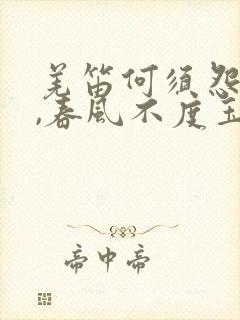 羌笛何须怨
,春风不度玉
帝中帝